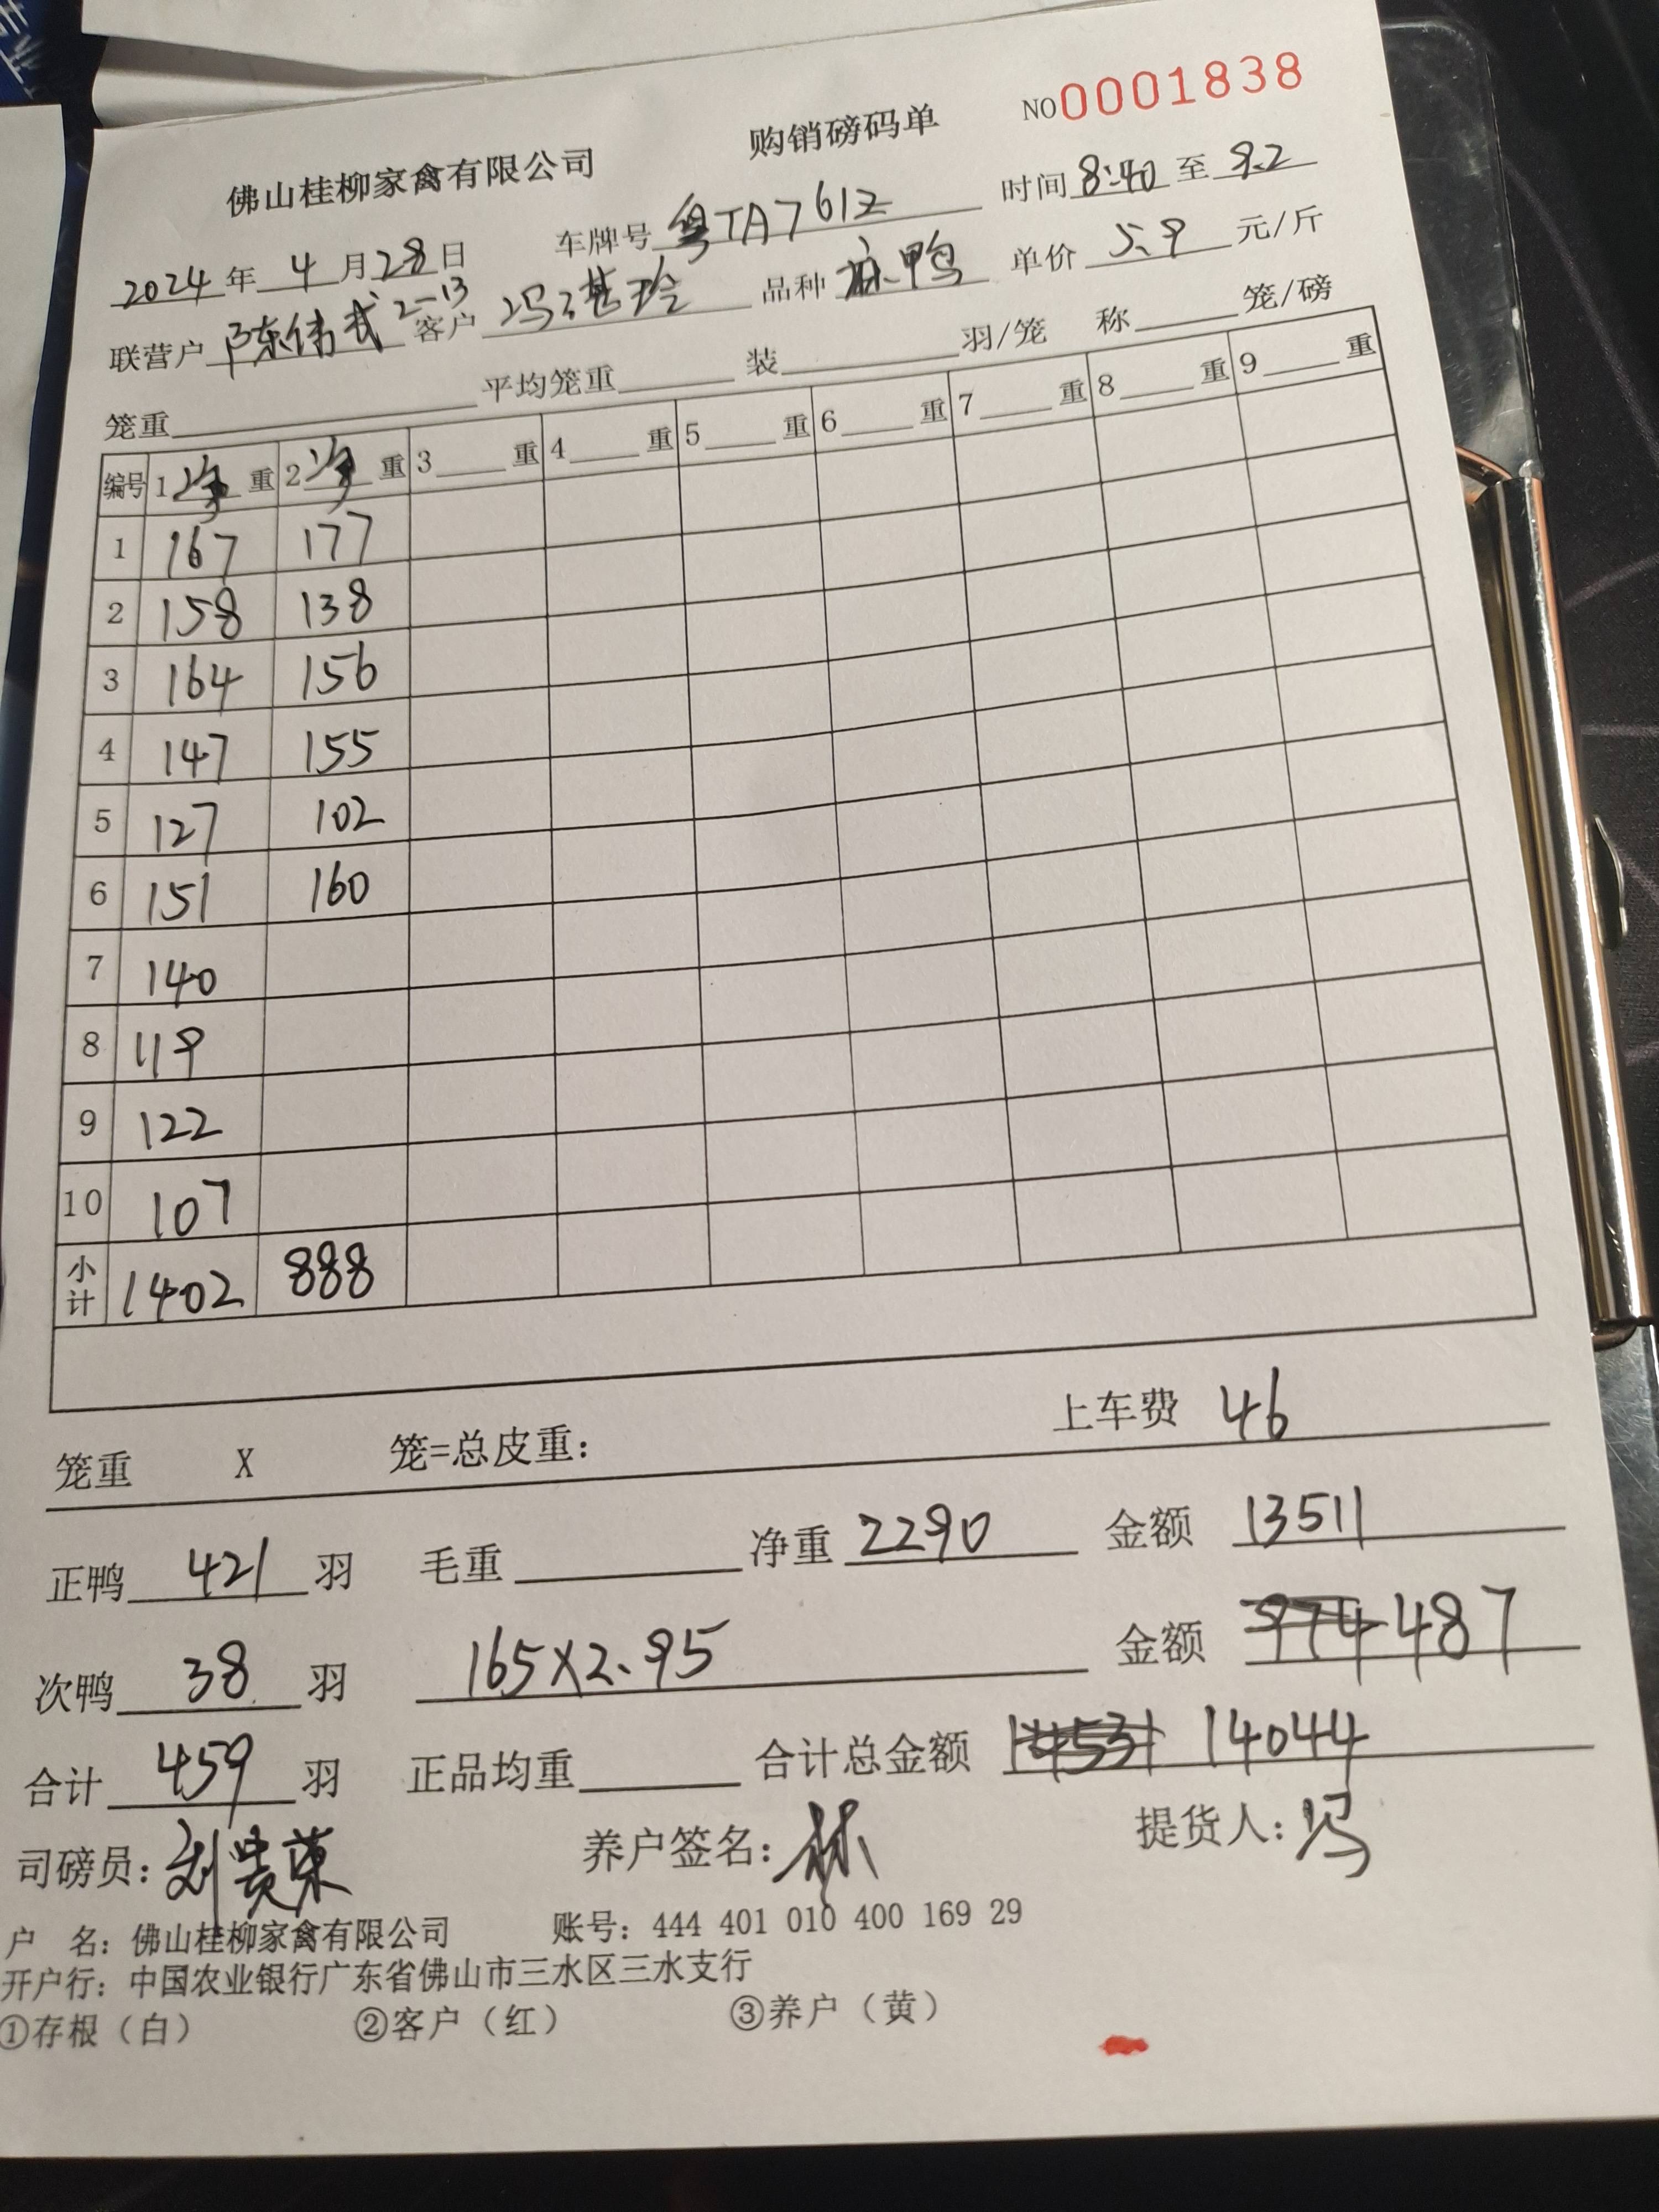 NO 0001838
佛山桂柳家禽有限公司 购销磅码单
2024 年 4 月 28 日 车牌号 粤TA7612 时间 8:40 至 9.2
联营户 陈伟武 2-13 客户 冯基玲 品种 麻鸭 单价 5.9 元/斤
笼重 平均笼重 装 羽/笼 称 笼/磅
编号 1 净 重 2 净 重 3 重 4 重 5 重 6 重 7 重 8 重 9 重
1 167 177
2 158 138
3 164 156
4 147 155
5 127 102
6 151 160
7 140
8 119
9 122
10 107
小计 1402 888
笼重 X 笼=总皮重: 上车费 46
正鸭 421 羽 毛重 净重 2290 金额 13511
次鸭 38 羽 165X2.95 金额 974 487
合计 459 羽 正品均重 合计总金额 14531 14044
司磅员: 刘贵荣 养户签名: 林 提货人: 冯
户 名: 佛山桂柳家禽有限公司 账号: 444 401 010 400 169 29
开户行: 中国农业银行广东省佛山市三水区三水支行
①存根（白） ②客户（红） ③养户（黄）